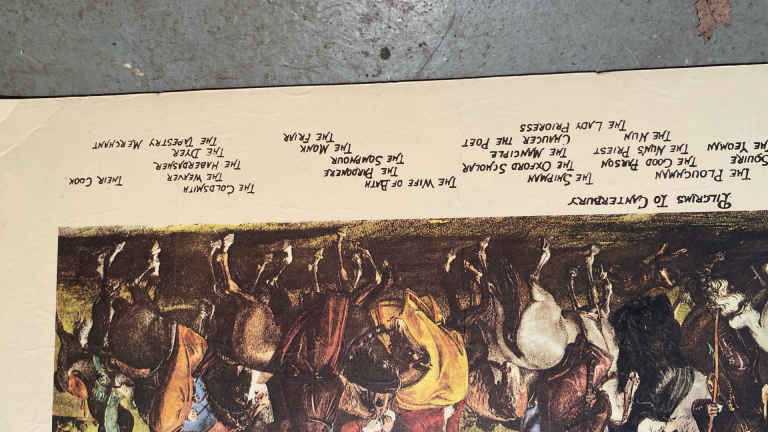 PILGRIMS TO CANTERBURY
SQUIRE
THE YEOMAN
THE PLOUGHMAN
THE GOOD PARSON
THE NUN'S PRIEST
THE NUN
THE LADY PRIORESS
THE SHIPMAN
THE OXFORD SCHOLAR
THE MANCIPLE
CHAUCER THE POET
THE WIFE OF BATH
THE PARDONERE
THE SOMPNOUR
THE MONK
THE FRIAR
THE GOLDSMITH
THE WEAVER
THE HABERDASHER
THE DYER
THE TAPESTRY MERCHANT
THEIR COOK